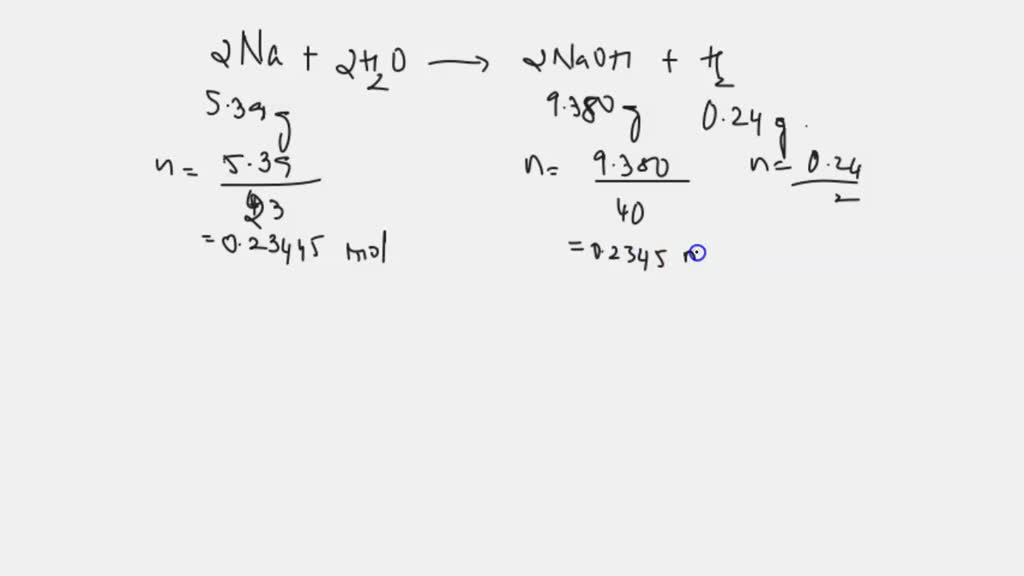 2Na + 2H2O → 2NaOH + H2
5.39 g 9.380 g 0.24 g .
n = 5.39 n = 9.380 n = 0.24
23 40 2
= 0.23445 mol = 0.2345 m